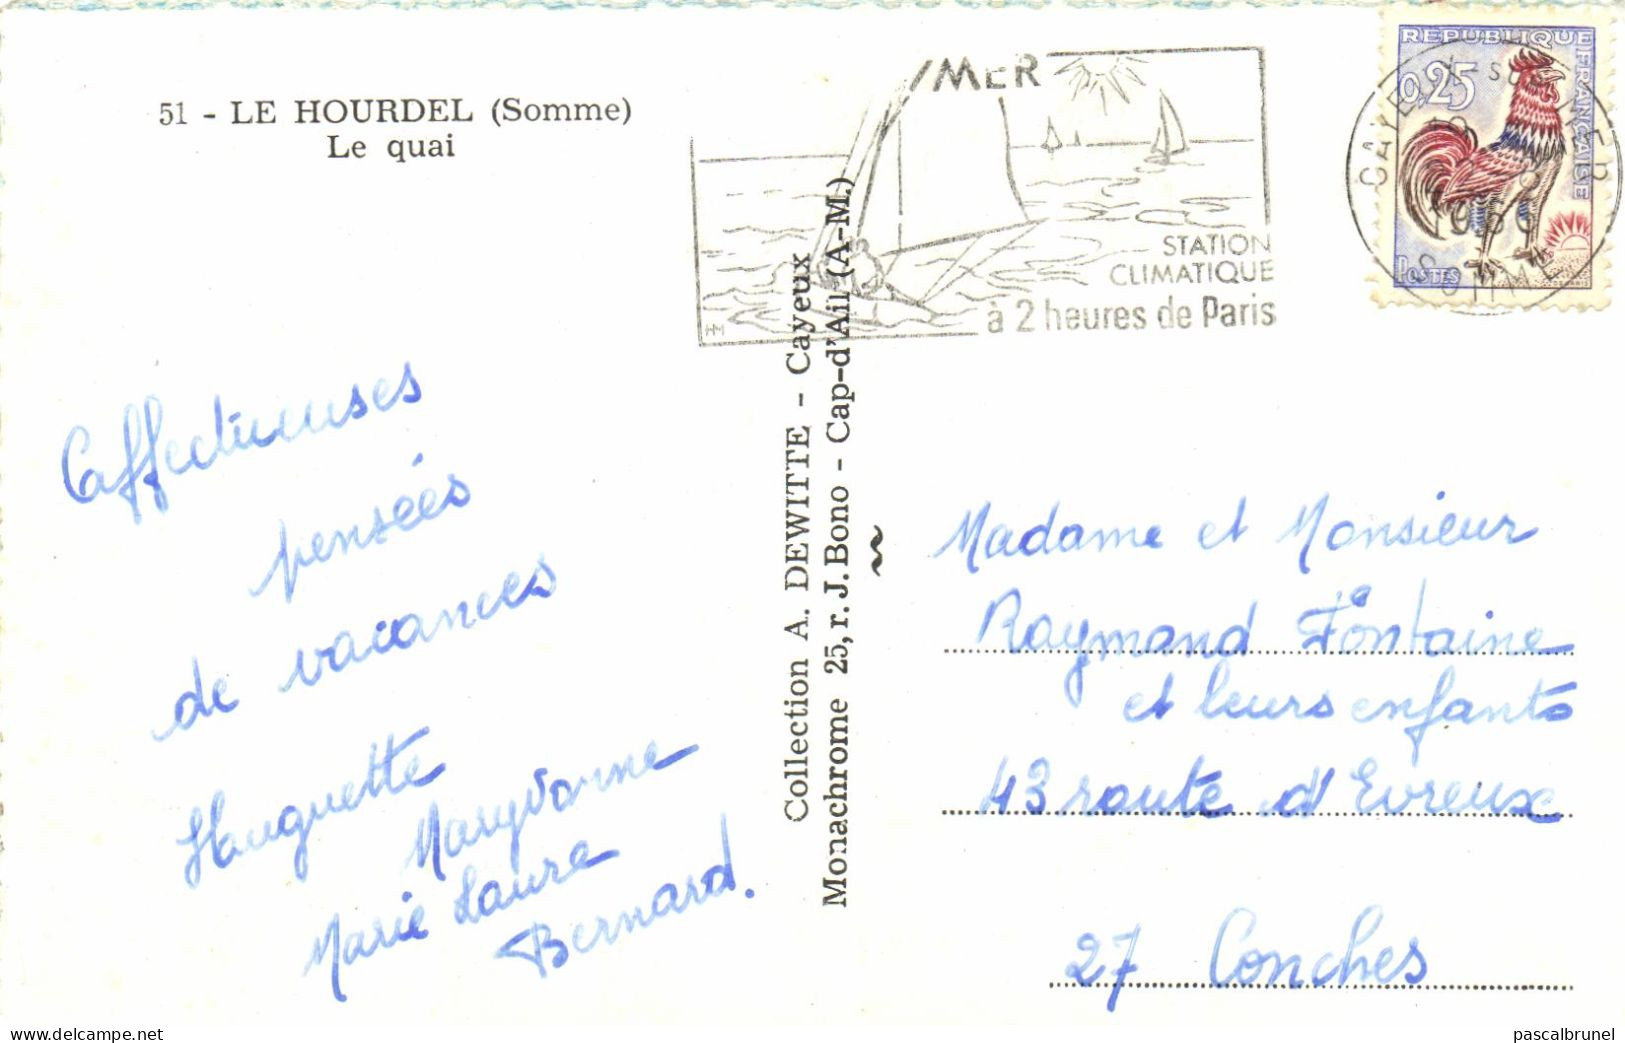 51 - LE HOURDEL (Somme)
Le quai
MER
STATION
CLIMATIQUE
à 2 heures de Paris
REPUBLIQUE FRANÇAISE
0,25
POSTES
SOMME
Collection A. DEWITTE - Cayeux
Monachrome 25, r. J. Bono - Cap-d'Ail (A-M.)
affectueuses
pensées
de vacances
Huguette
Maryvonne
Marie Laure
Bernard.
Madame et Monsieur
Raymond Fontaine
et leurs enfants
43 route d'Evreux
27 Conches
www.delcampe.net
pascalbrunel